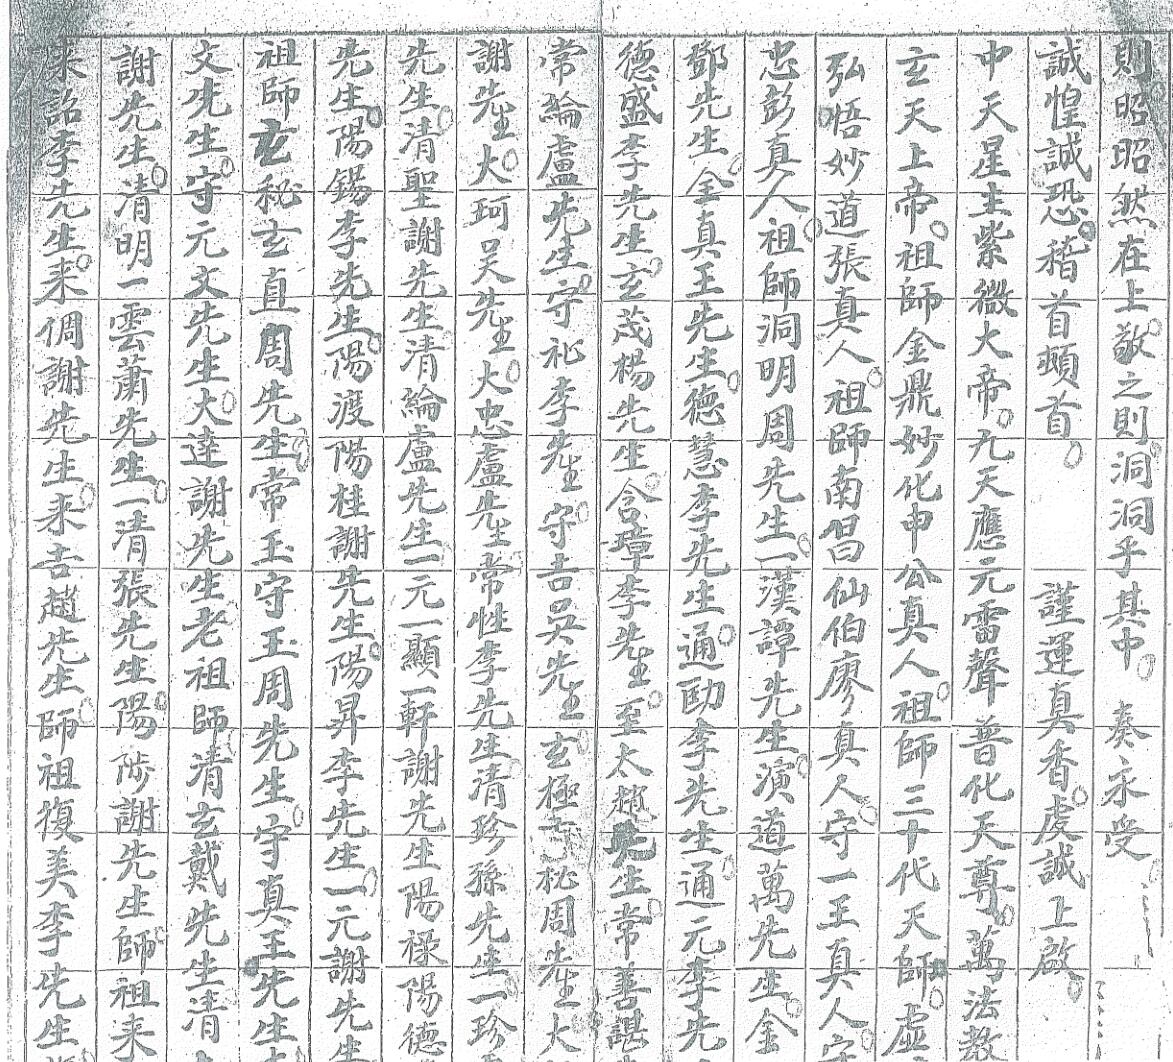 則昭昭然在上。敬之則。洞洞乎其中。奏永受
誠惶誠恐。稽首頓首。謹運真香。虔誠上啟。
中天星主紫微大帝。九天應元雷聲普化天尊。萬法教
玄天上帝。祖師金鼎妙化申公真人。祖師三十代天師。虛
弘悟妙道張真人。祖師南昌仙伯廖真人。守一王真人。守
忠彭真人。祖師洞明周先生。一漢譚先生。演道萬先生。金
鄧先生。全真王先生。德慧李先生。通勔李先生。通元李先
德盛李先生。玄茂楊先生。含璋李先生。至太趙先生。常善諶
常綸盧先生。守礼李先生。守吉吳先生。玄極 松周先生。大
謝先生。大珂吴先生。大忠盧先生。常性李先生。清珍孫先生。一珍
先生。清聖謝先生。清綸盧先生。一元一顯一軒謝先生。陽祿陽德
先生。陽錫李先生。陽渡陽桂謝先生。陽昇李先生。一元謝先生
祖師玄秘玄直周先生。常玉守玉周先生。守真王先生
文先生。守元文先生。大達謝先生。老祖師清玄戴先生。清
謝先生。清明一雲蕭先生。一清張先生。陽陟謝先生。師祖来
来詔李先生。来倜謝先生。来吉趙先生。師祖復美李先生